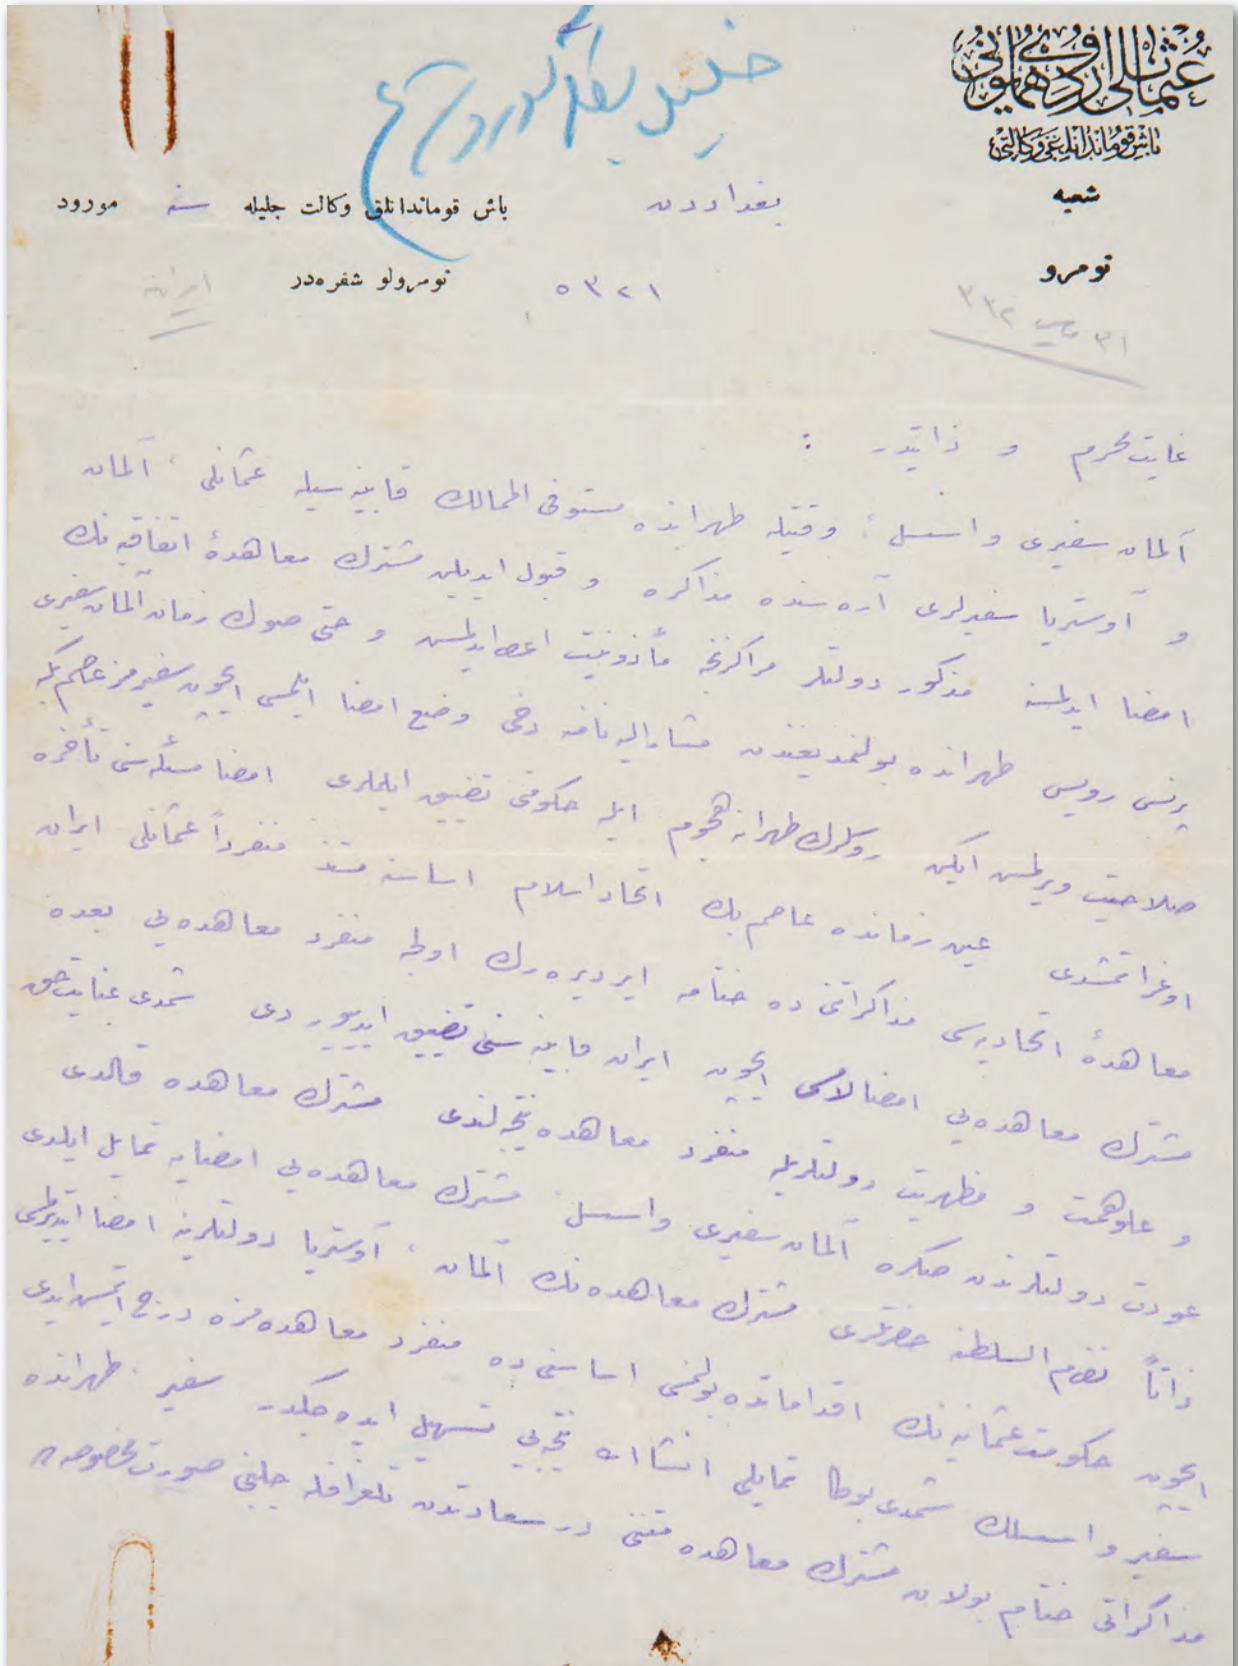 عثمانلی اردوی همایونی
باش قوماندانلغی وکالتی
شعبه
نومرو
٣١ مایس ٣٣٢
بغداددن
٥٣٢١
باش قوماندانلق وکالت جلیله سنه مورود
نومرولو شفره‌در
ایران
غایت محرم و ذاتیدر :
آلمان سفیری واسسل ، وقتیله طهرانده مستوفی الممالك قابینه سیله عثمانلی ، آلمان
و آوستریا سفیرلری آره سنده مذاکره و قبول ایدیلن مشترك معاهدهٔ اتفاقیه نك
امضا ایدلمسنه مذکور دولتلر مراکزنجه مأذونیت اعطا ایدلمش و حتی صوك زمان آلمان سفیری
پرنس رویس طهرانده بولنمدیغندن مشار الیه نامنه دخی وضع امضا ایتمسی ایچون سفیرمز عاصم بكه
صلاحیت ویرلمش ایکن روسلرك طهرانه هجوم ایله حکومتی تضییق ایلملری امضا مسئله سنی تأخره
اوغراتمشدی عین زمانده عاصم بك اتحاد اسلام اساسنه مستند منفرداً عثمانلی ایران
معاهدهٔ اتحادیه سی مذاکراتنی ده ختامه ایردیره رك اولجه منفرد معاهده یی بعده
مشترك معاهده یی امضالامسی ایچون ایران قابینه سنی تضییق ایدیوردی شمدی عنایت حق
و علو همت و مظهریت دولتلریله منفرد معاهده نتیجه لندی مشترك معاهده قالدی
عودت دولتلرندن صکره آلمان سفیری واسسل مشترك معاهده یی امضایه تمایل ایلدی
ذاتاً نظام السلطنه حضرتلری مشترك معاهده نك آلمان ، آوستریا دولتلرینه امضا ایتدیرلمسی
ایچون حکومت عثمانیه نك اقداماتده بولنمسی اساسنی ده منفرد معاهده مزه درج ایتمش ایدی
سفیر واسسلك شمدی بوکا تمایلی انشاالله نتیجه یی تسهیل ایده جکدر سفیر طهرانده
مذاکراتی ختام بولان مشترك معاهده متننی در سعادتدن تلغرافله جلبنی صورت مخصوصه ده